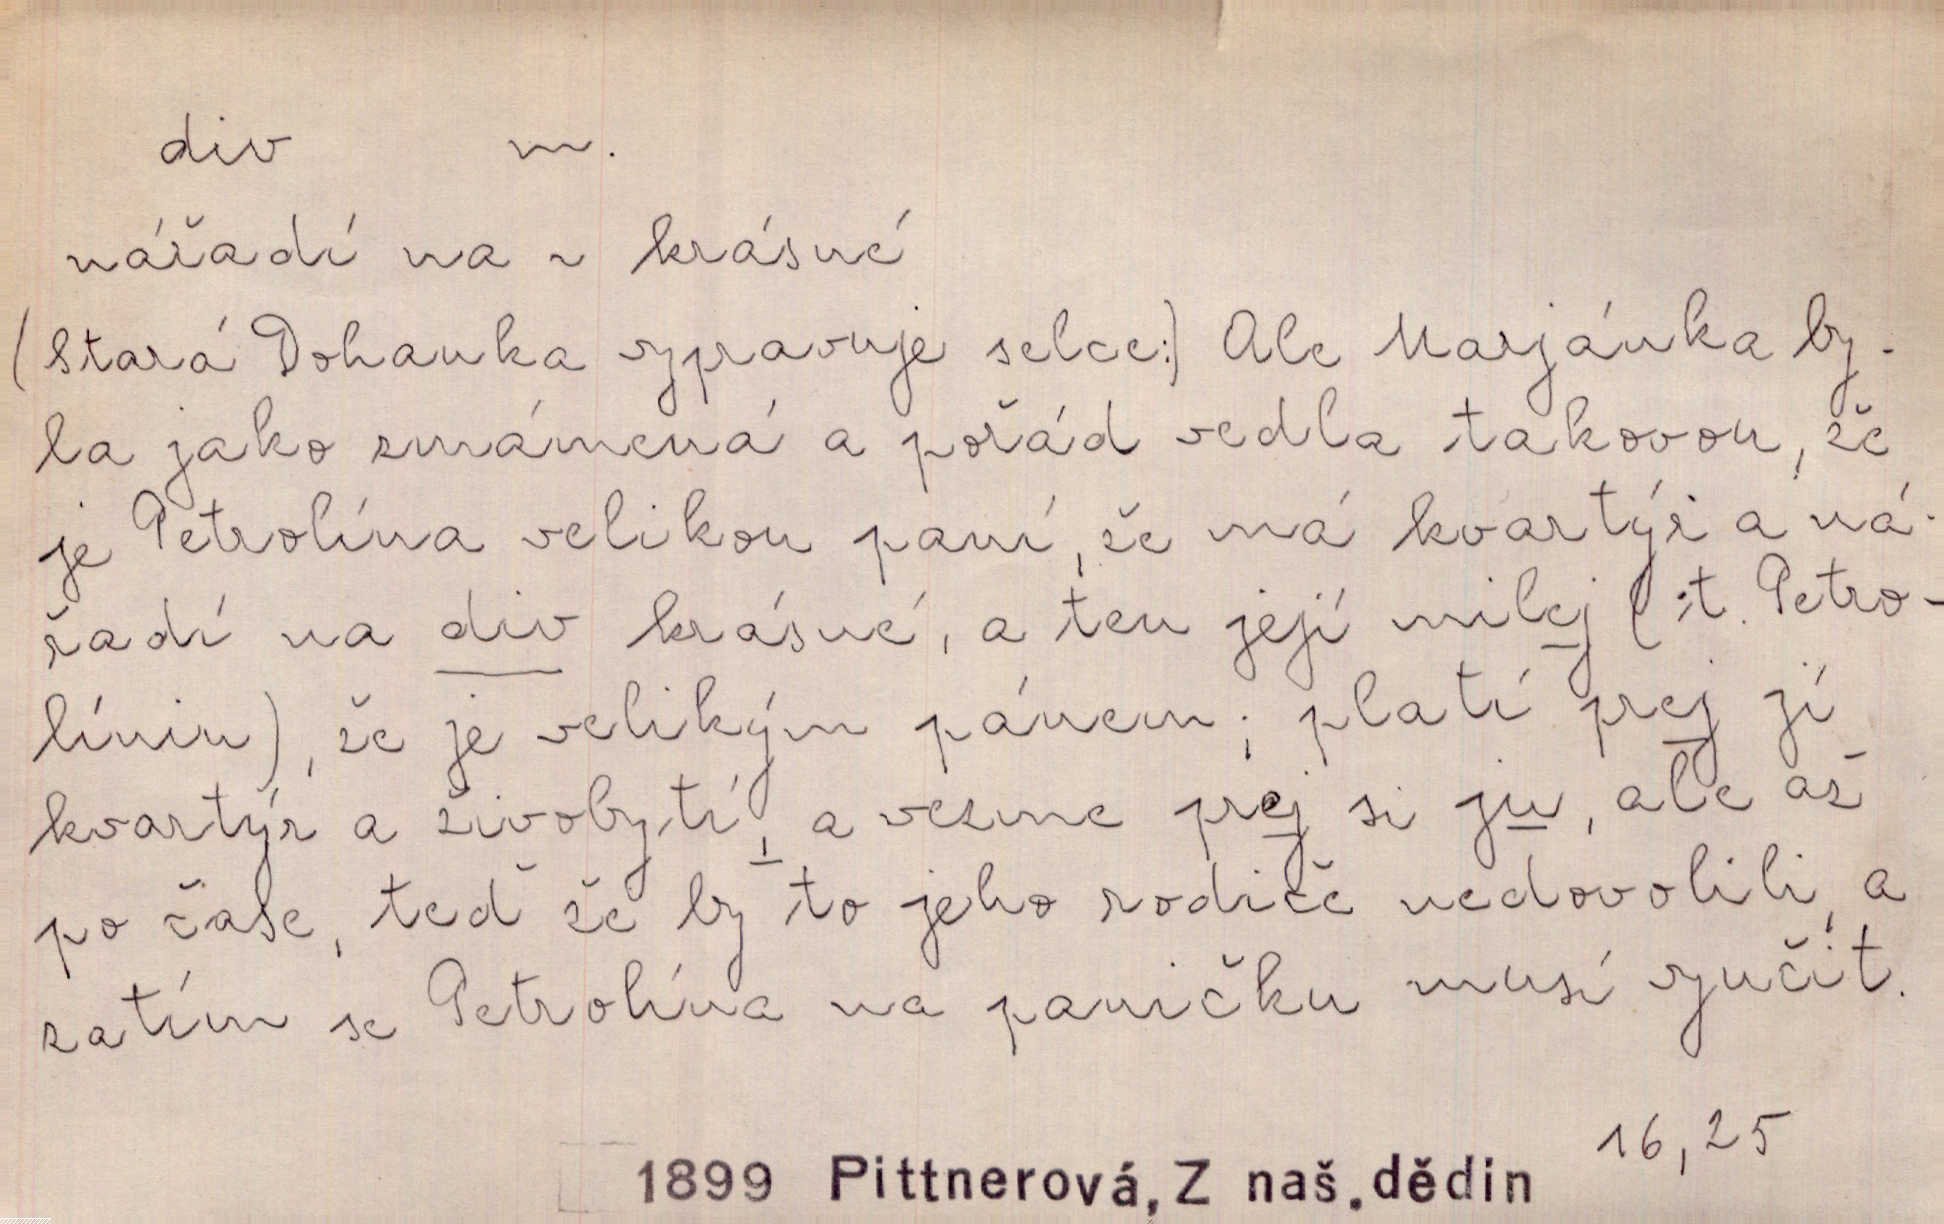 div m.
nářadí na ~ krásné
(stará Dohauka vypravuje selce:) Ale Marjánka by-
la jako zmámená a pořád vedla takovou, že
je Petrolína velikou paní, že má kvartýr a ná-
řadí na div krásné, a ten její milej (:t. Petro-
línin), že je velikým pánem; platí prej jí
kvartýr a živobytí, a vezme prej si ju, ale až
po čase, teď že by to jeho rodiče nedovolili, a
zatím se Petrolína na paničku musí vyučit.
16,25
1899 Pittnerová, Z naš. dědin